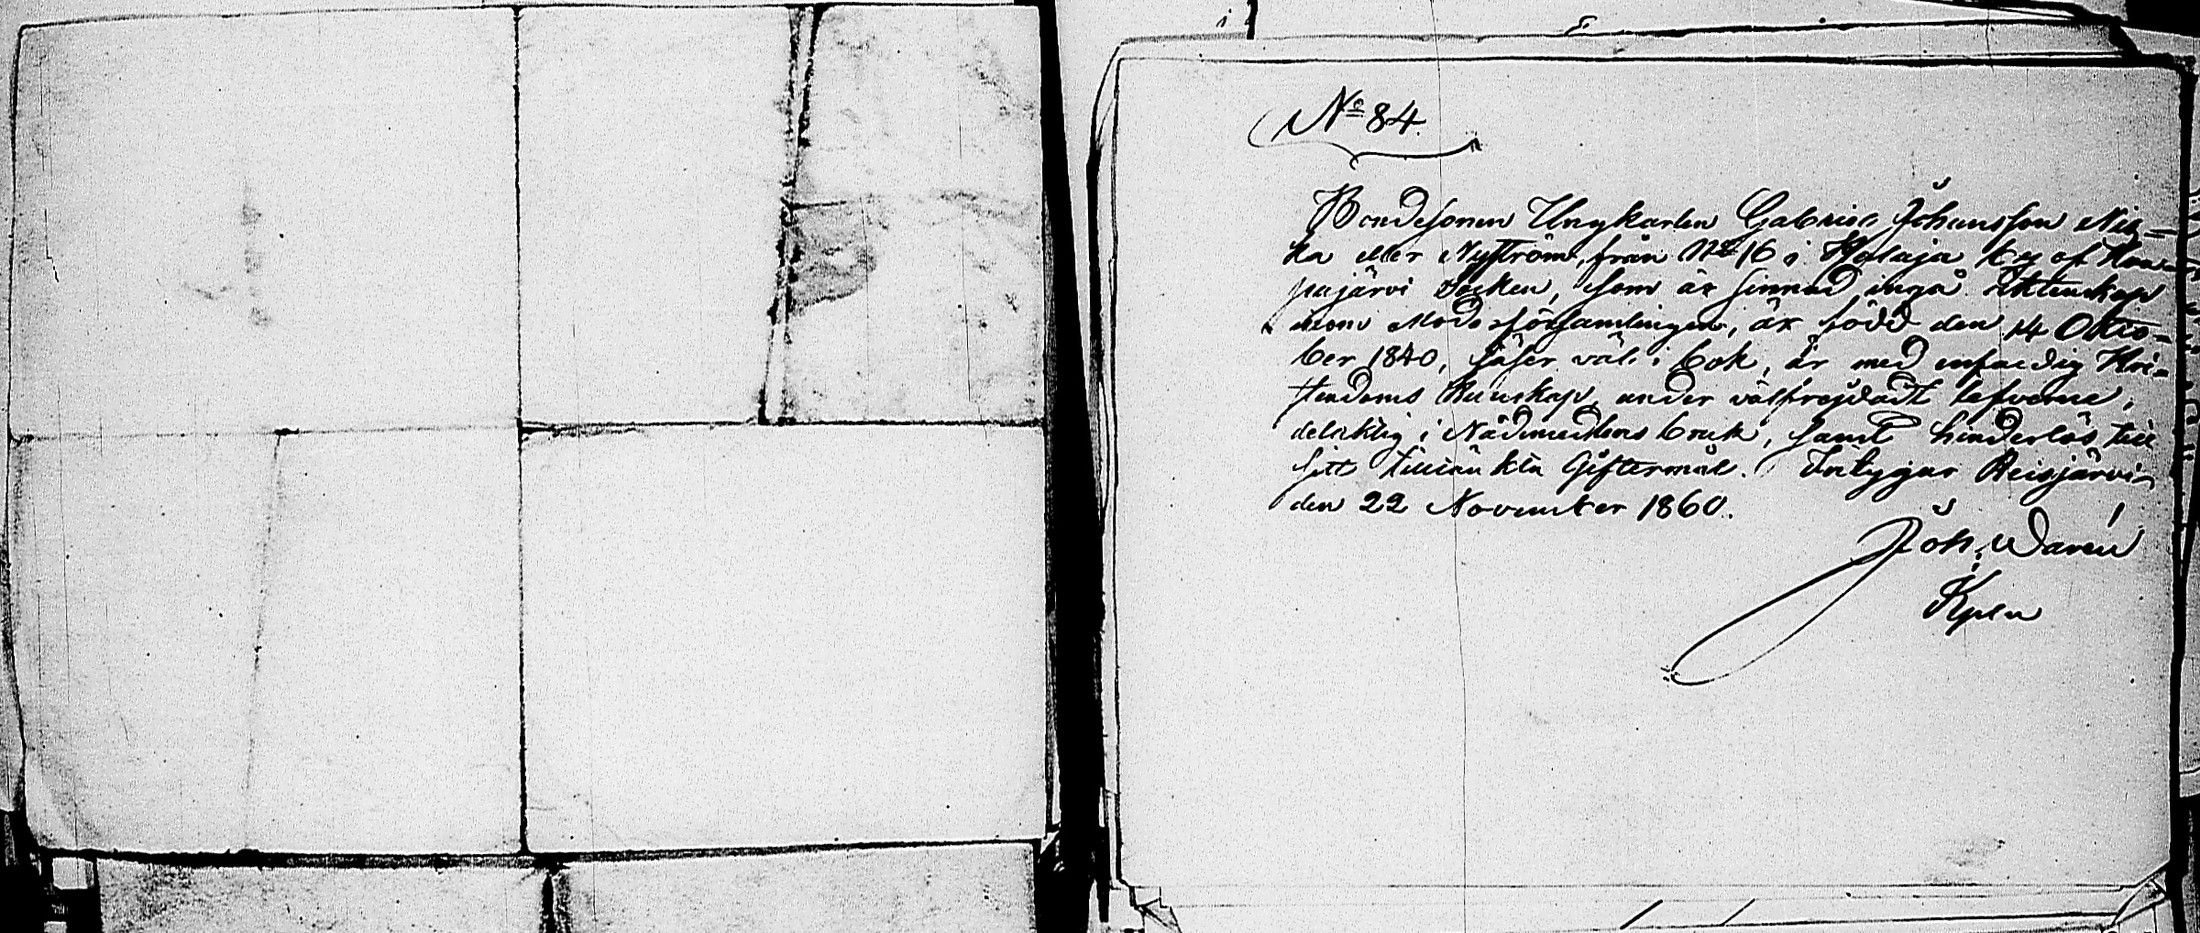 No 84.
Bondesonen Ungkarlen Gabriel Johansson Nis-
ka eller Nyström, från No 16 i Kalaja by af Haa-
pajärvi Socken, som är sinnad ingå äktenskap
inom Modersförsamlingen, är född den 14 Octo-
ber 1840, läser väl i bok, är med enfaldig Kri-
stendoms kunskap, under välfrejdadt lefverne,
delaktig i Nådemedlens bruk, samt hinderlös till
sitt tillämnkta Giftermål. Intygar Reisjärvi
den 22 November 1860.
Joh. Warén
Kpln